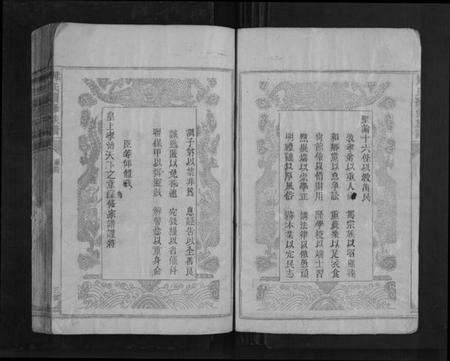 聖諭十六條以教萬民
敦孝弟以重人倫 篤宗族以昭雍睦
和鄉黨以息爭訟 重農桑以足衣食
尚節儉以惜財用 隆學校以端士習
黜異端以崇正學 講法律以儆愚頑
明禮讓以厚風俗 務本業以定民志
訓子弟以禁非為 息誣告以全善良
誡匿逃以免株連 完錢糧以省催科
聯保甲以弭盜賊 解讐忿以重身命
臣等
皇上孝治天下之